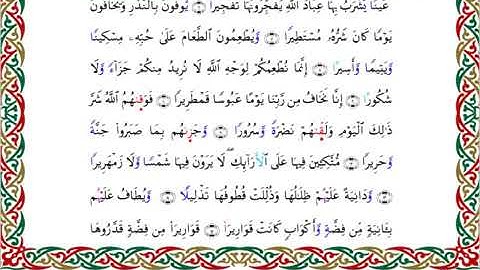 عَيْنًا يَشْرَبُ بِهَا عِبَادُ اللَّهِ يُفَجِّرُونَهَا تَفْجِيرًا ۝ يُوفُونَ بِالنَّذْرِ وَيَخَافُونَ
يَوْمًا كَانَ شَرُّهُۥ مُسْتَطِيرًا ۝ وَيُطْعِمُونَ الطَّعَامَ عَلَىٰ حُبِّهِۦ مِسْكِينًا
وَيَتِيمًا وَأَسِيرًا ۝ إِنَّمَا نُطْعِمُكُمْ لِوَجْهِ اللَّهِ لَا نُرِيدُ مِنكُمْ جَزَآءً وَلَا
شُكُورًا ۝ إِنَّا نَخَافُ مِن رَّبِّنَا يَوْمًا عَبُوسًا قَمْطَرِيرًا ۝ فَوَقَىٰهُمُ اللَّهُ شَرَّ
ذَٰلِكَ الْيَوْمِ وَلَقَّىٰهُمْ نَضْرَةً وَسُرُورًا ۝ وَجَزَىٰهُم بِمَا صَبَرُوا۟ جَنَّةً
وَحَرِيرًا ۝ مُّتَّكِـِٔينَ فِيهَا عَلَى الْأَرَآئِكِ ۖ لَا يَرَوْنَ فِيهَا شَمْسًا وَلَا زَمْهَرِيرًا
۝ وَدَانِيَةً عَلَيْهِمْ ظِلَٰلُهَا وَذُلِّلَتْ قُطُوفُهَا تَذْلِيلًا ۝ وَيُطَافُ عَلَيْهِم
بِـَٔانِيَةٍ مِّن فِضَّةٍ وَأَكْوَابٍ كَانَتْ قَوَارِيرَا۠ ۝ قَوَارِيرَا۟ مِن فِضَّةٍ قَدَّرُوهَا